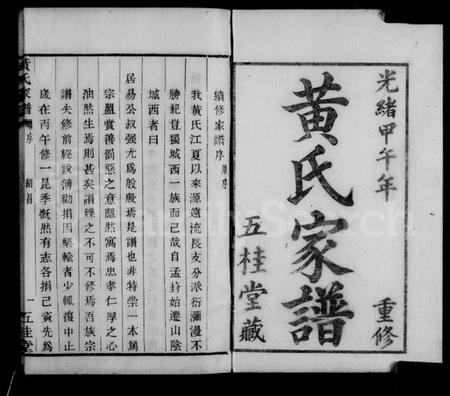 光緒甲午年
重修
黃氏家譜
五桂堂藏
續修家譜序 原序
我黃氏江夏以來源遠流長支分派衍瀰漫不
勝紀豈獨城西一族而已哉自孟封始遷山陰
城西者曰
居易公叔强尤爲殷殷焉是譜也非特崇一本篤
宗盟賞善罰惡之意隱然寓焉忠孝仁厚之心
油然生焉則甚矣譜牒之不可不修焉吾族宗
譜失修前經設簿勸捐因樂輸者少輒復中止
歲在丙午修一昆季慨然有志各捐己資先爲
黃氏家譜
序
一
五桂堂
FamilySearch